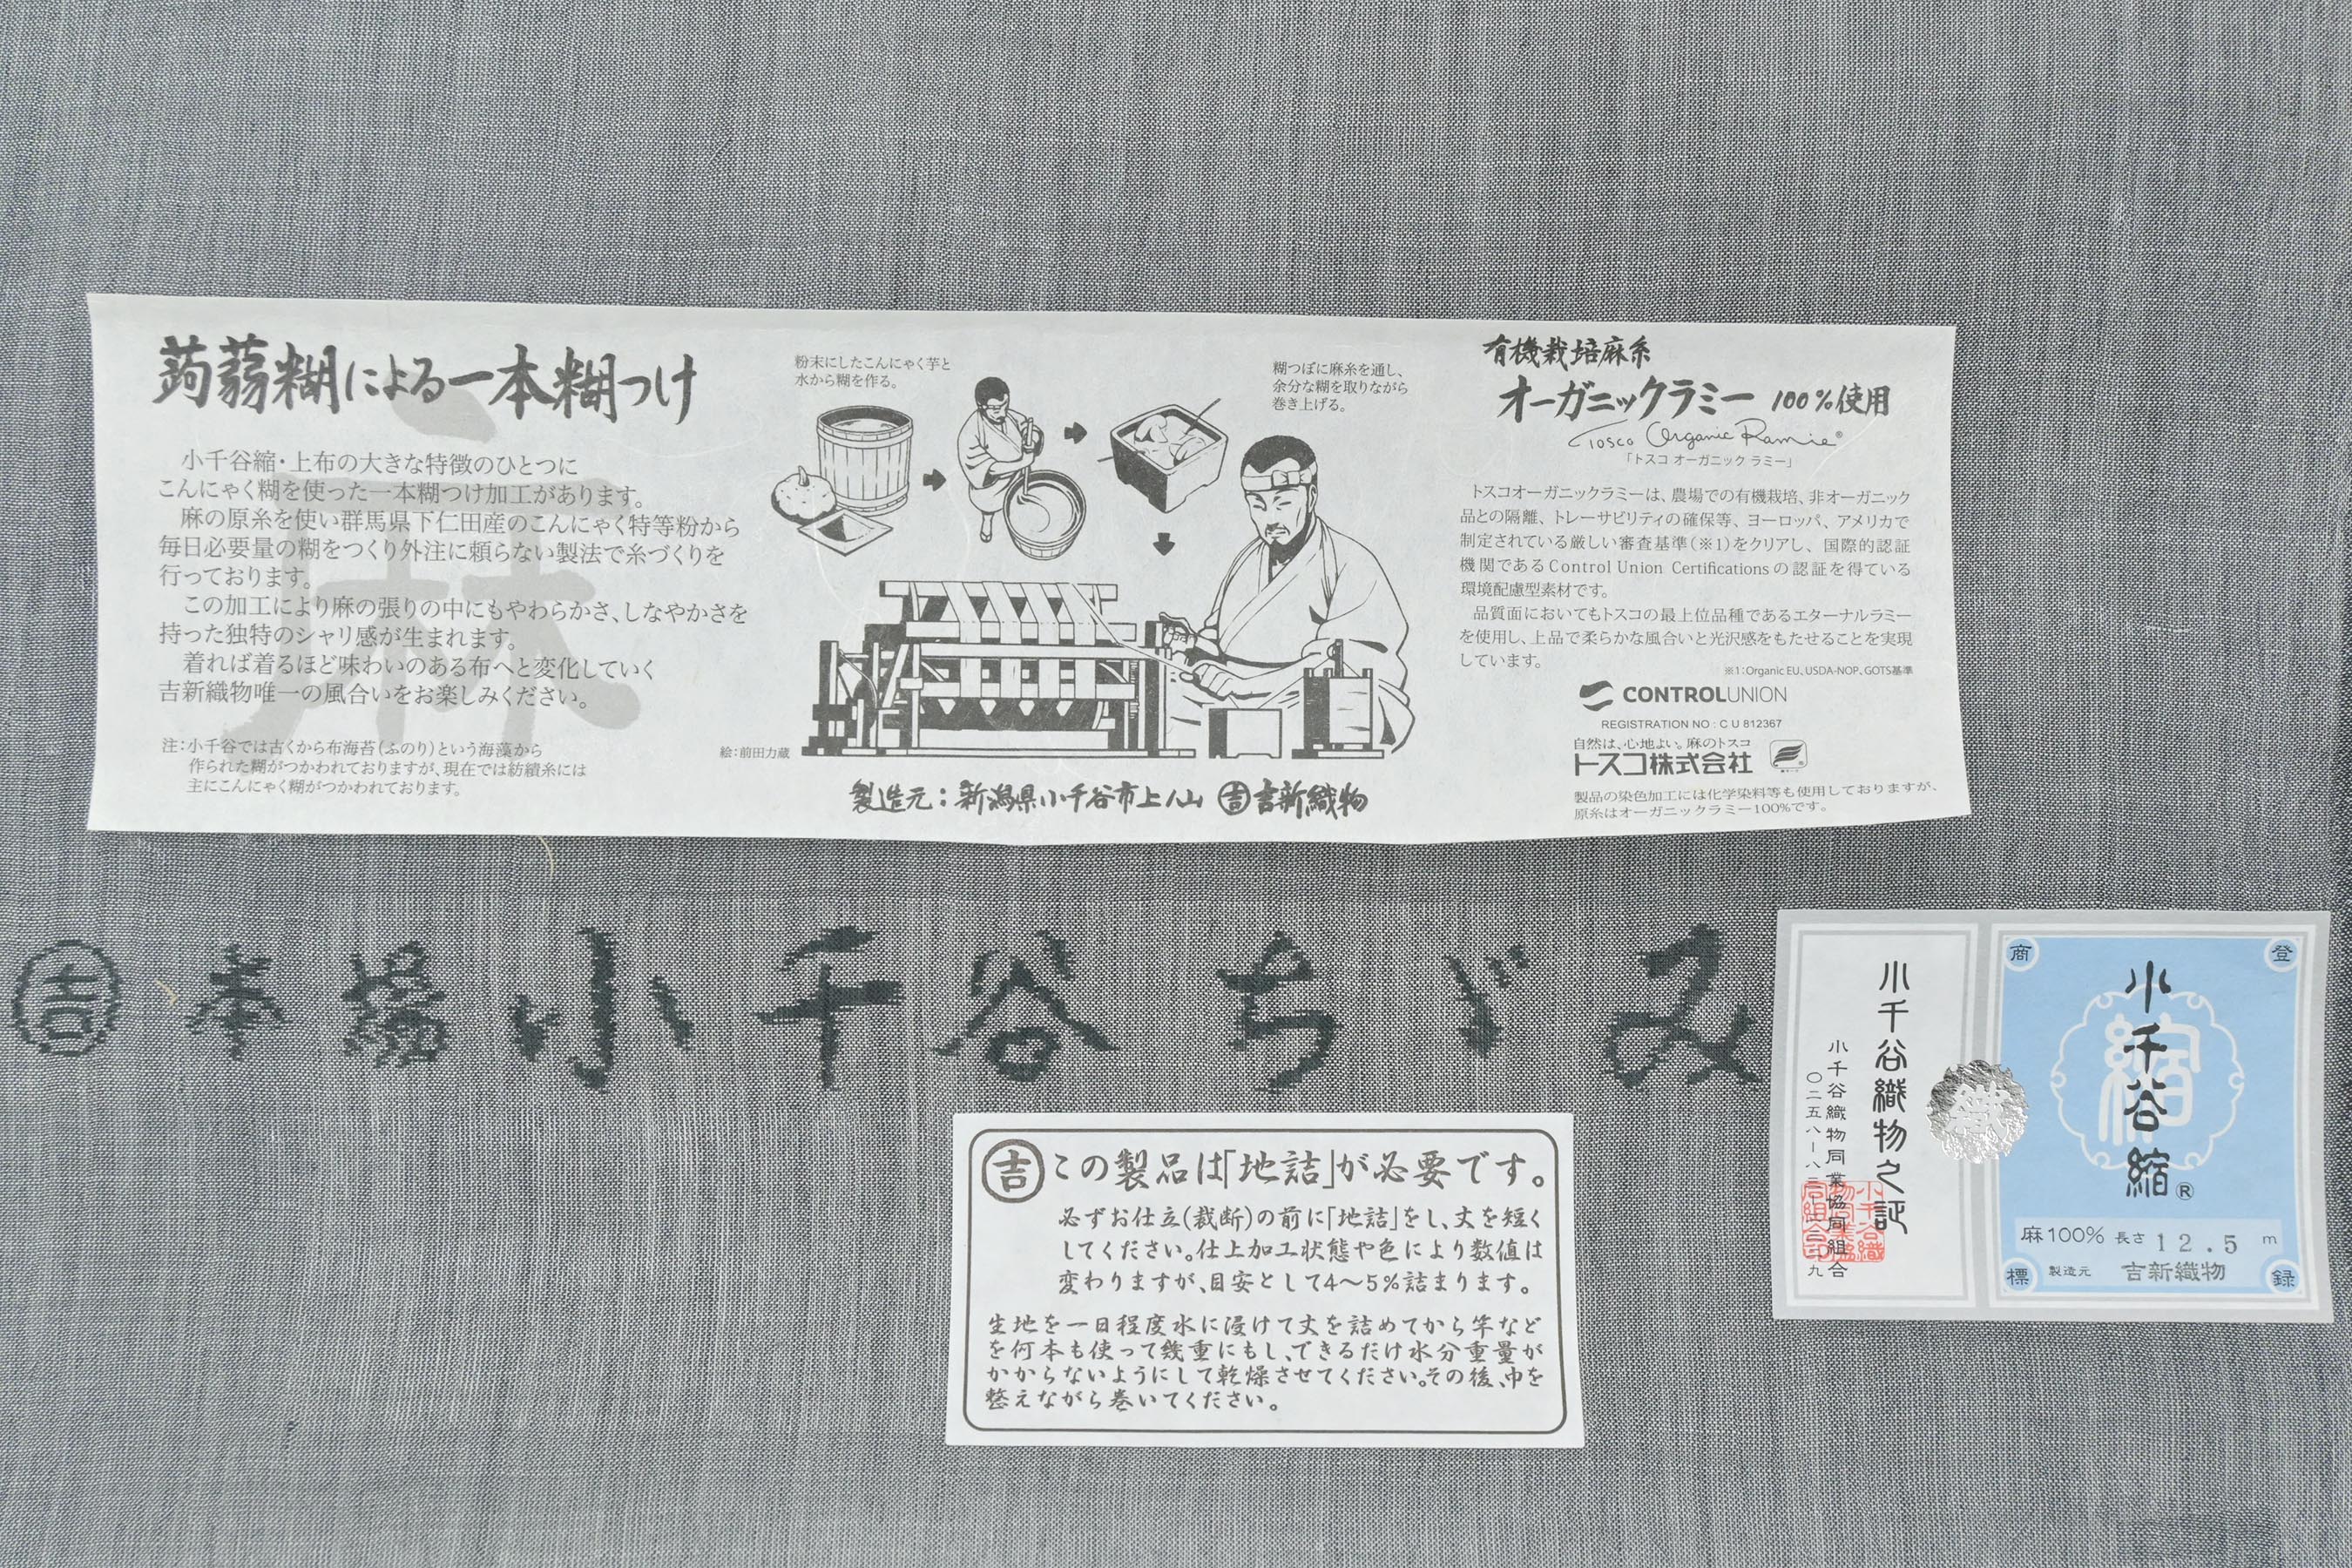 蒟蒻糊による一本糊つけ
小千谷縮・上布の大きな特徴のひとつに
こんにゃく糊を使った一本糊つけ加工があります。
麻の原糸を使い群馬県下仁田産のこんにゃく特等粉から
毎日必要量の糊をつくり外注に頼らない製法で糸づくりを
行っております。
この加工により麻の張りの中にもやわらかさ、しなやかさを
持った独特のシャリ感が生まれます。
着れば着るほど味わいのある布へと変化していく
吉新織物唯一の風合いをお楽しみください。
注:小千谷では古くから布海苔(ふのり)という海藻から
作られた糊がつかわれておりますが、現在では紡績糸には
主にこんにゃく糊がつかわれております。
麻
粉末にしたこんにゃく芋と
水から糊を作る。
糊つぼに麻糸を通し、
余分な糊を取りながら
巻き上げる。
絵:前田力蔵
製造元:新潟県小千谷市上ノ山 ㊤吉新織物
有機栽培麻糸
オーガニックラミー 100%使用
Tosco Organic Ramie®
「トスコ オーガニック ラミー」
トスコオーガニックラミーは、農場での有機栽培、非オーガニック
品との隔離、トレーサビリティの確保等、ヨーロッパ、アメリカで
制定されている厳しい審査基準(※1)をクリアし、国際的認証
機関であるControl Union Certificationsの認証を得ている
環境配慮型素材です。
品質面においてもトスコの最上位品種であるエターナルラミー
を使用し、上品で柔らかな風合いと光沢感をもたせることを実現
しています。
※1:Organic EU、USDA-NOP、GOTS基準
CONTROLUNION
REGISTRATION NO : C U 812367
自然は、心地よい。麻のトスコ
トスコ株式会社
製品の染色加工には化学染料等も使用しておりますが、
原糸はオーガニックラミー100%です。
吉 本場小千谷ちゞみ
吉 この製品は「地詰」が必要です。
必ずお仕立(裁断)の前に「地詰」をし、丈を短く
してください。仕上加工状態や色により数値は
変わりますが、目安として4〜5%詰まります。
生地を一日程度水に浸けて丈を詰めてから竿など
を何本も使って幾重にもし、できるだけ水分重量が
かからないようにして乾燥させてください。その後、巾を
整えながら巻いてください。
小千谷織物之証
小千谷織物同業協同組合
織
登録商標
縮
小千谷縮®
麻100% 長さ 12.5 m
製造元 吉新織物